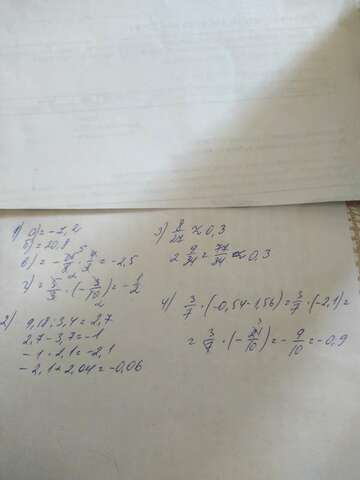 1) а) = -7,2
б) = 20,8
в) = - 25/8 · 4/5 = -2,5
г) = 5/3 · (- 3/10) = - 1/2
2) 9,18 : 3,4 = 2,7
2,7 - 3,7 = -1
-1 · 2,1 = -2,1
-2,1 + 2,04 = -0,06
3) 8/27 ≈ 0,3
2 9/34 = 77/34 ≈ 0,3
4) 3/7 · (-0,54 - 1,56) = 3/7 · (-2,1) =
= 3/7 · (- 21/10) = - 9/10 = -0,9